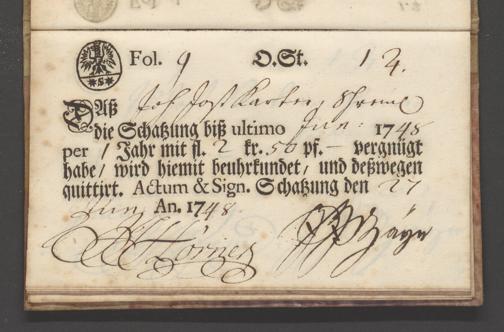 Fol. 9 O.St. 12.
Daß Joh Jost
die Schatzung biß ultimo Jun: 1748
per 1 Jahr mit fl. 2 kr. 50 pf. – vergnügt
habe/ wird hiemit beuhrkundet/ und deßwegen
quittirt. Actum & Sign. Schatzung den 27
Juny An. 1748.